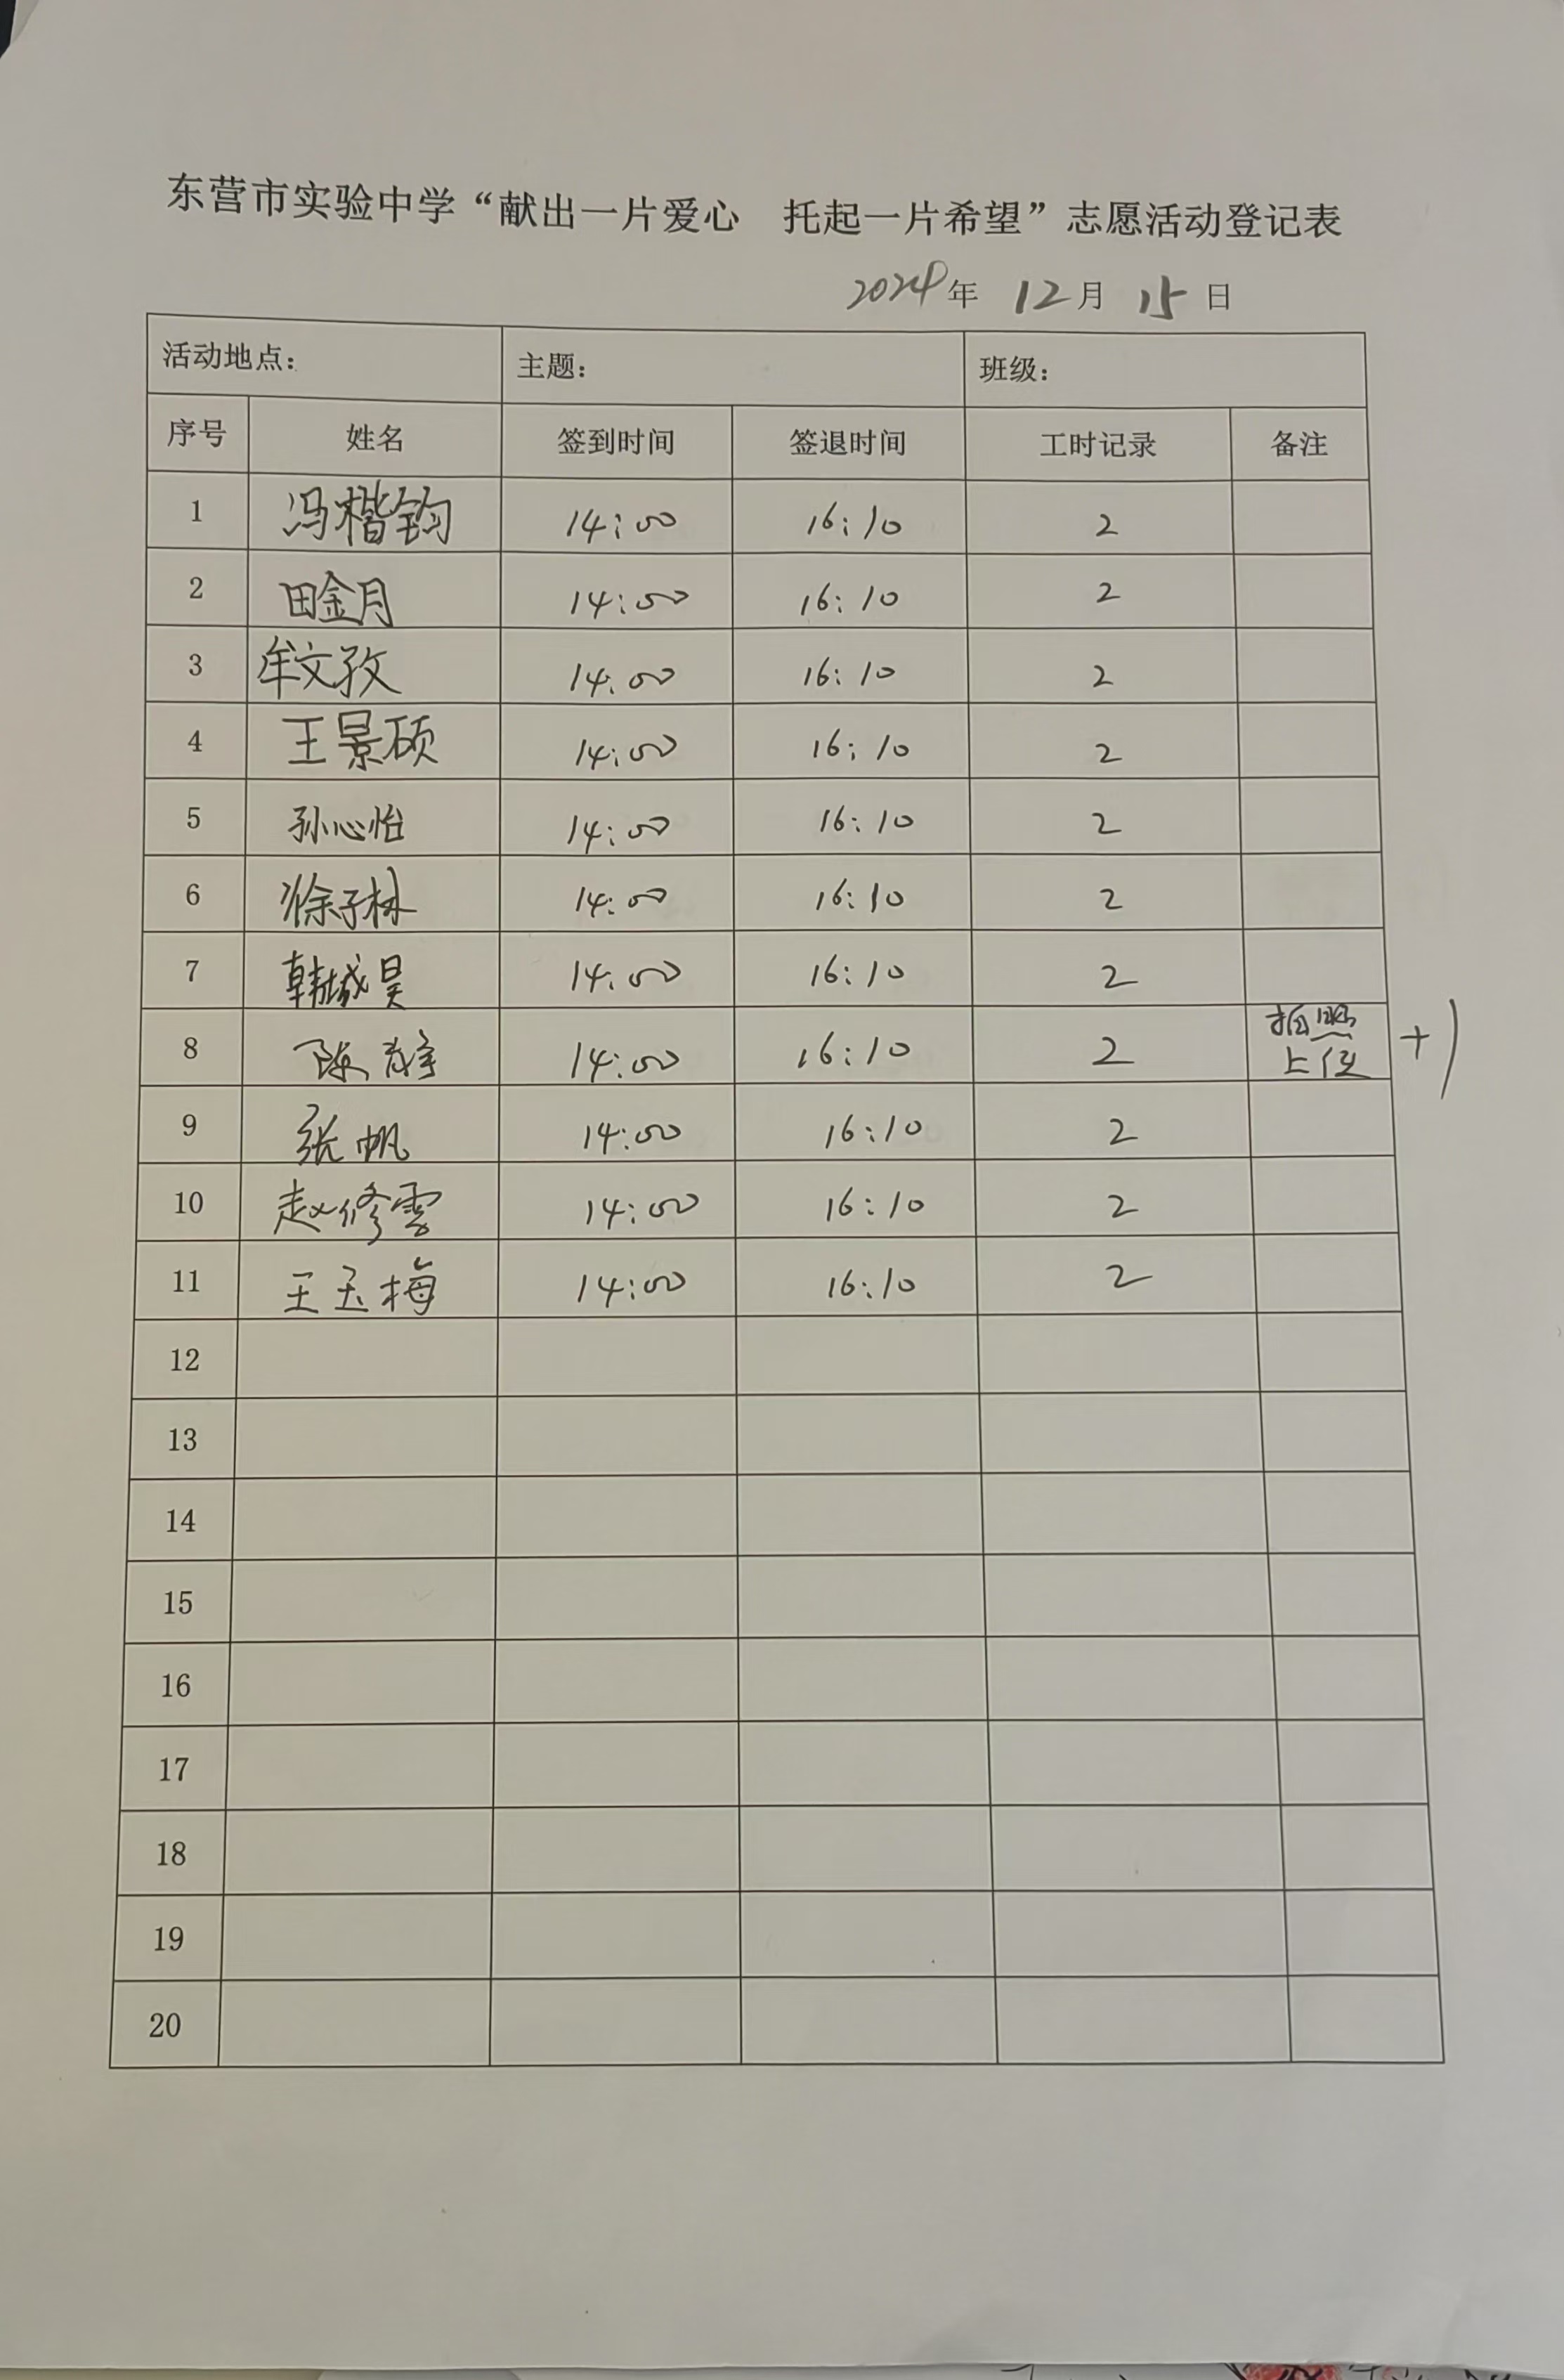 东营市实验中学“献出一片爱心 托起一片希望”志愿活动登记表
2024年 12月 15日
活动地点： 主题： 班级：
序号 姓名 签到时间 签退时间 工时记录 备注
1 冯楷钧 14:00 16:10 2
2 田金月 14:00 16:10 2
3 牟文孜 14:00 16:10 2
4 王景硕 14:00 16:10 2
5 孙心怡 14:00 16:10 2
6 徐子林 14:00 16:10 2
7 韩城昊 14:00 16:10 2
8 陈 14:00 16:10 2 拍照上传 +1
9 张帆 14:00 16:10 2
10 赵修雯 14:00 16:10 2
11 王玉梅 14:00 16:10 2
12
13
14
15
16
17
18
19
20